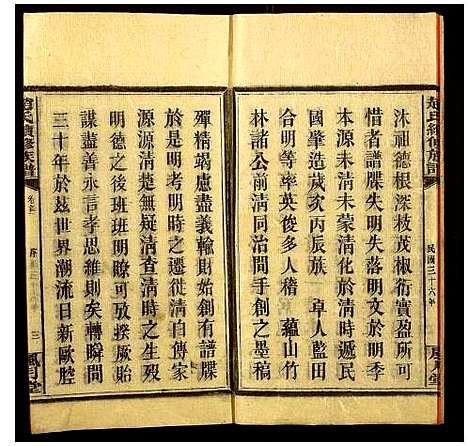 趙氏續修族譜
民國三十六年
沐祖德根深枝茂椒衍實盈所可
惜者譜牒失明失落明文於明季
國肇造歲次丙辰族 卓人藍田
合明等率英俊多人稽 蘊山竹
林諸公前清同手創之墨稿
殫精竭慮盡義輸財始創有譜牒
於是明考明時之遷徙清自傳家
源源清楚無疑清查清時之生歿
明德之後班班明瞭可考厥始
謀盡善永言孝思維則矣轉瞬間
三十年於玆世界潮流日新歐腔
趙氏續修族譜
三
鳳月堂